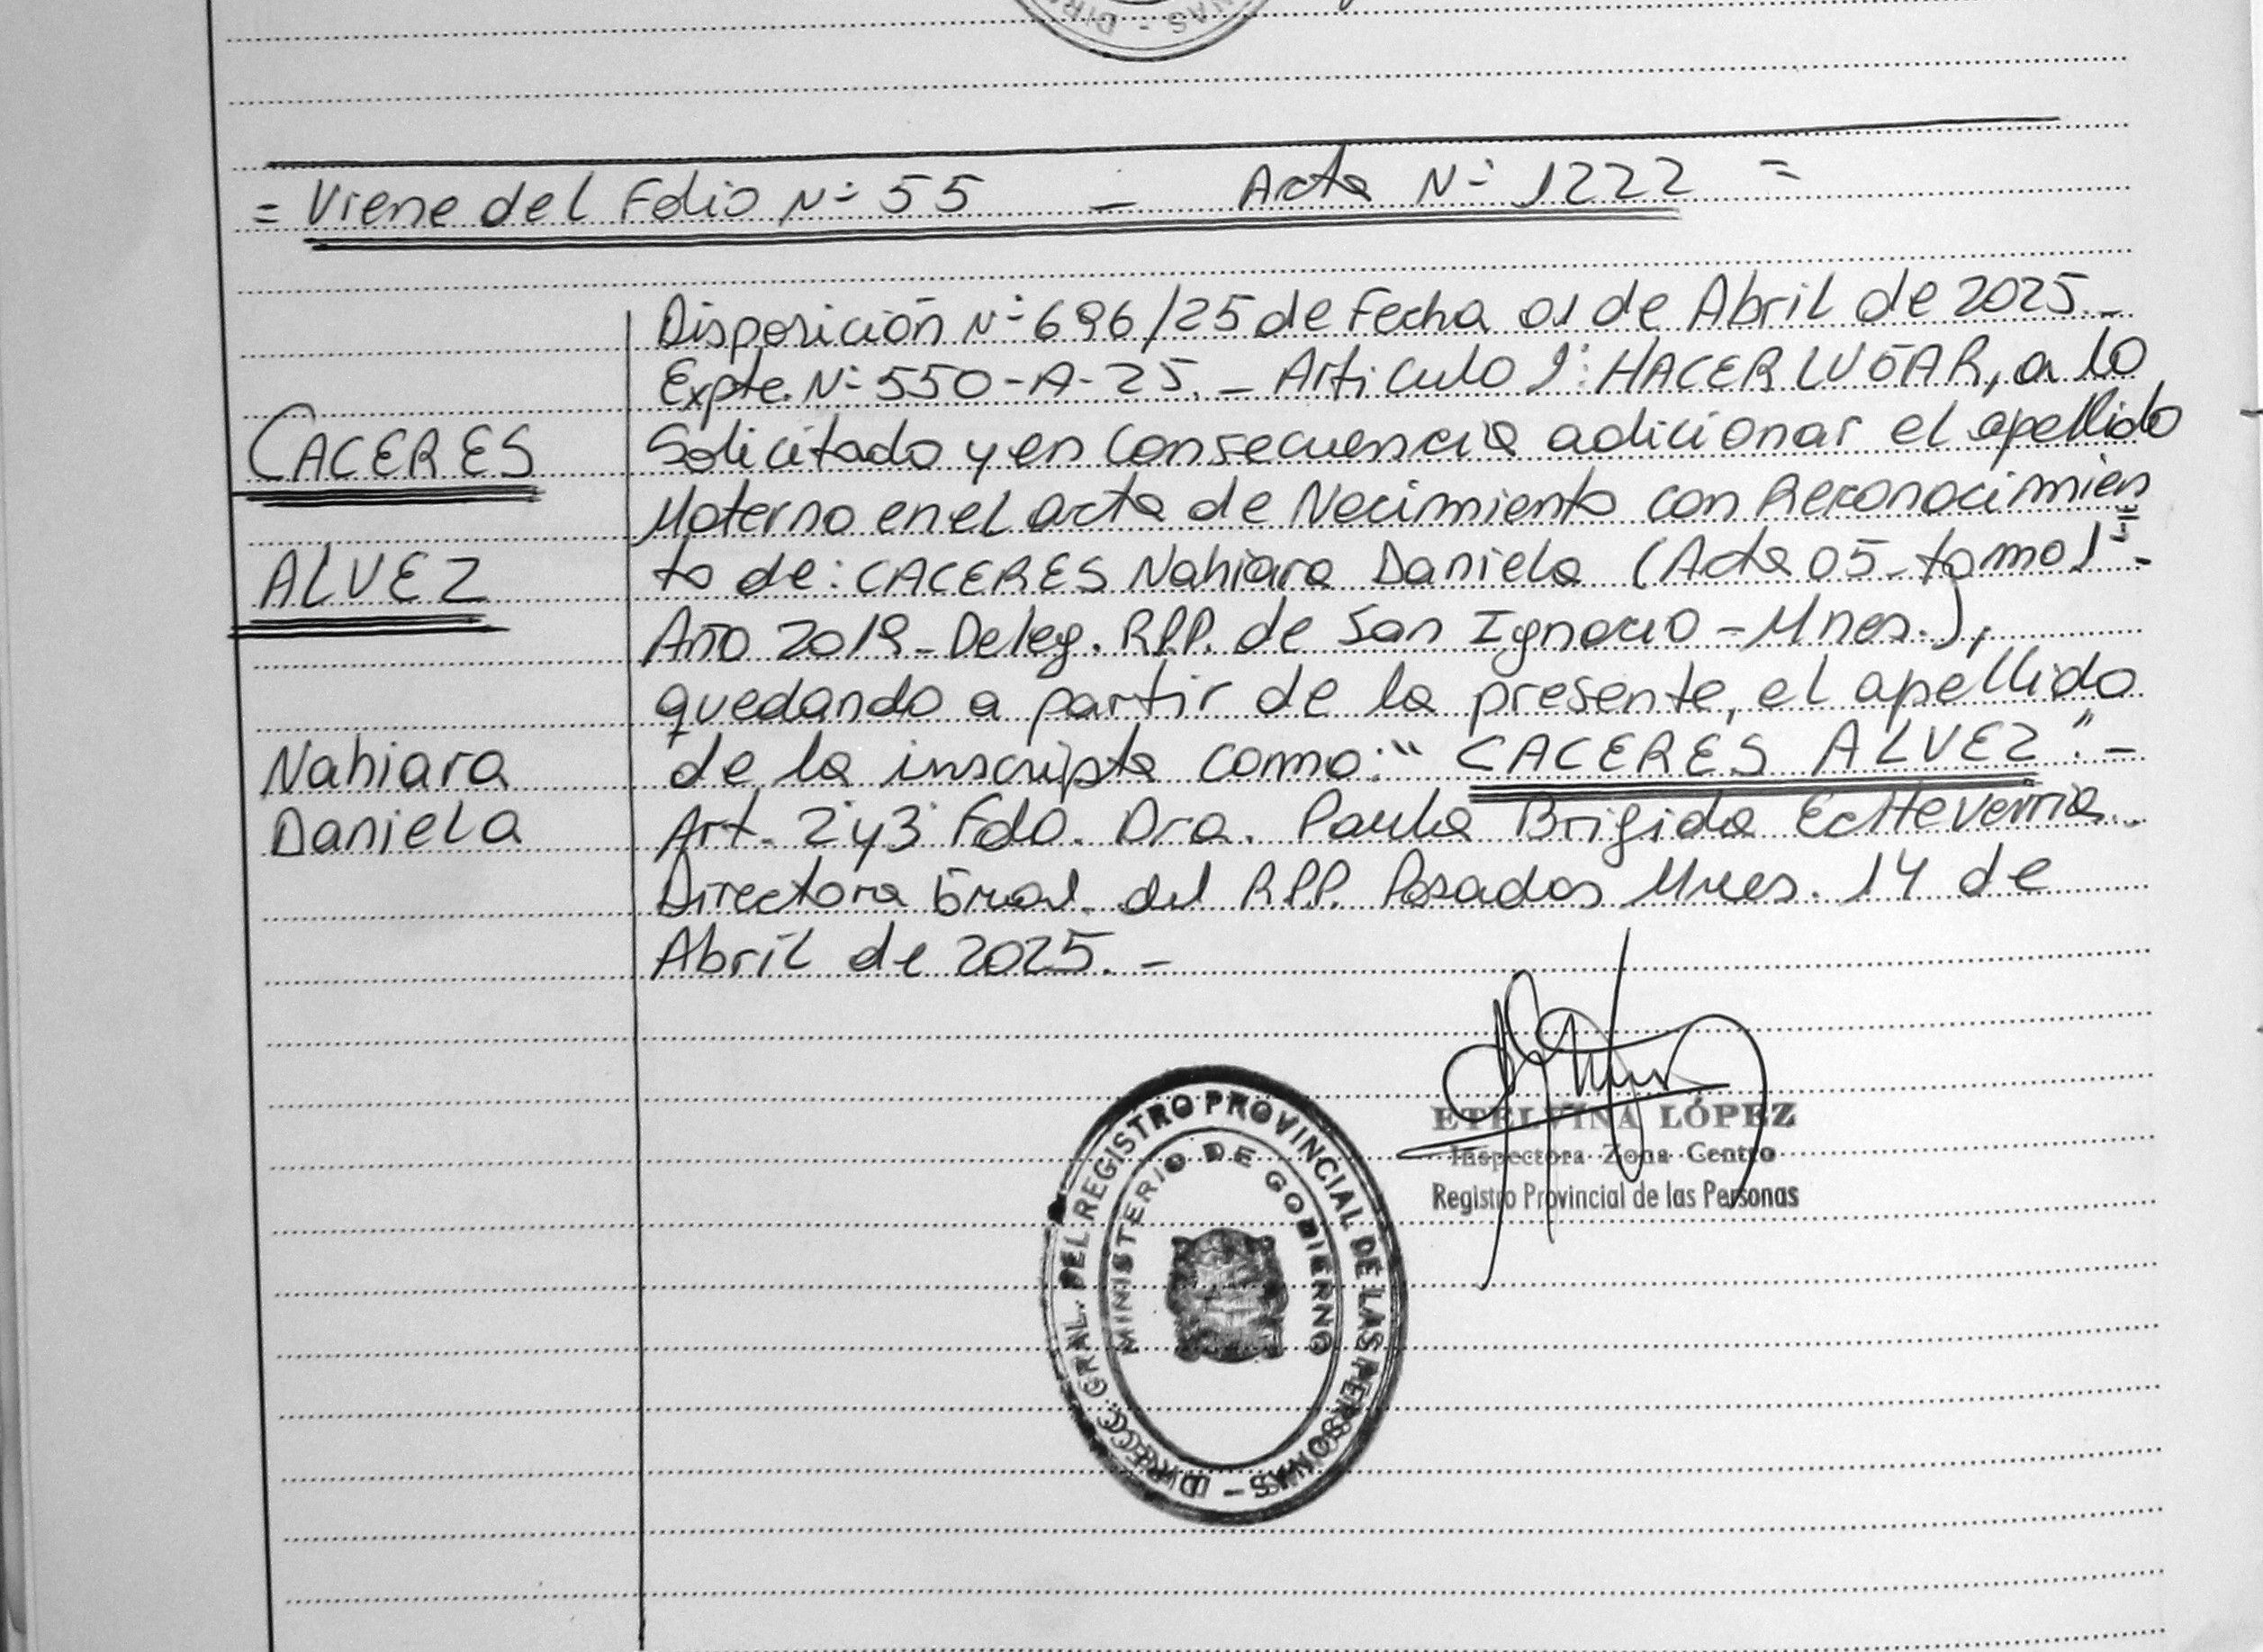 = Viene del Folio Nº 55 — Acta Nº 1222 =
Disposición Nº 696/25 de Fecha 01 de Abril de 2025.-
Expte. Nº 550-A-25. - Articulo 1º: HACER LUGAR, a lo
CACERES
Solicitado y en Consecuencia adicionar el apellido
Materno en el acta de Nacimiento con Reconocimien
ALVEZ
to de: CACERES Nahiara Daniela (Acta 05-tomo 1º-
Año 2019-Deleg. R.P.P. de San Ignacio-Mnes.),
quedando a partir de la presente, el apellido
Nahiara
de la inscripta como: "CACERES ALVEZ".-
Daniela
Art. 2º y 3º Fdo. Dra. Paula Brigida Echeverria.
Directora Gral. del R.P.P. Posadas Mnes. 14 de
Abril de 2025.-
ETELVINA LÓPEZ
Inspectora Zona Centro
Registro Provincial de las Personas
DIRECC. GRAL. DEL REGISTRO PROVINCIAL DE LAS PERSONAS -
MINISTERIO DE GOBIERNO